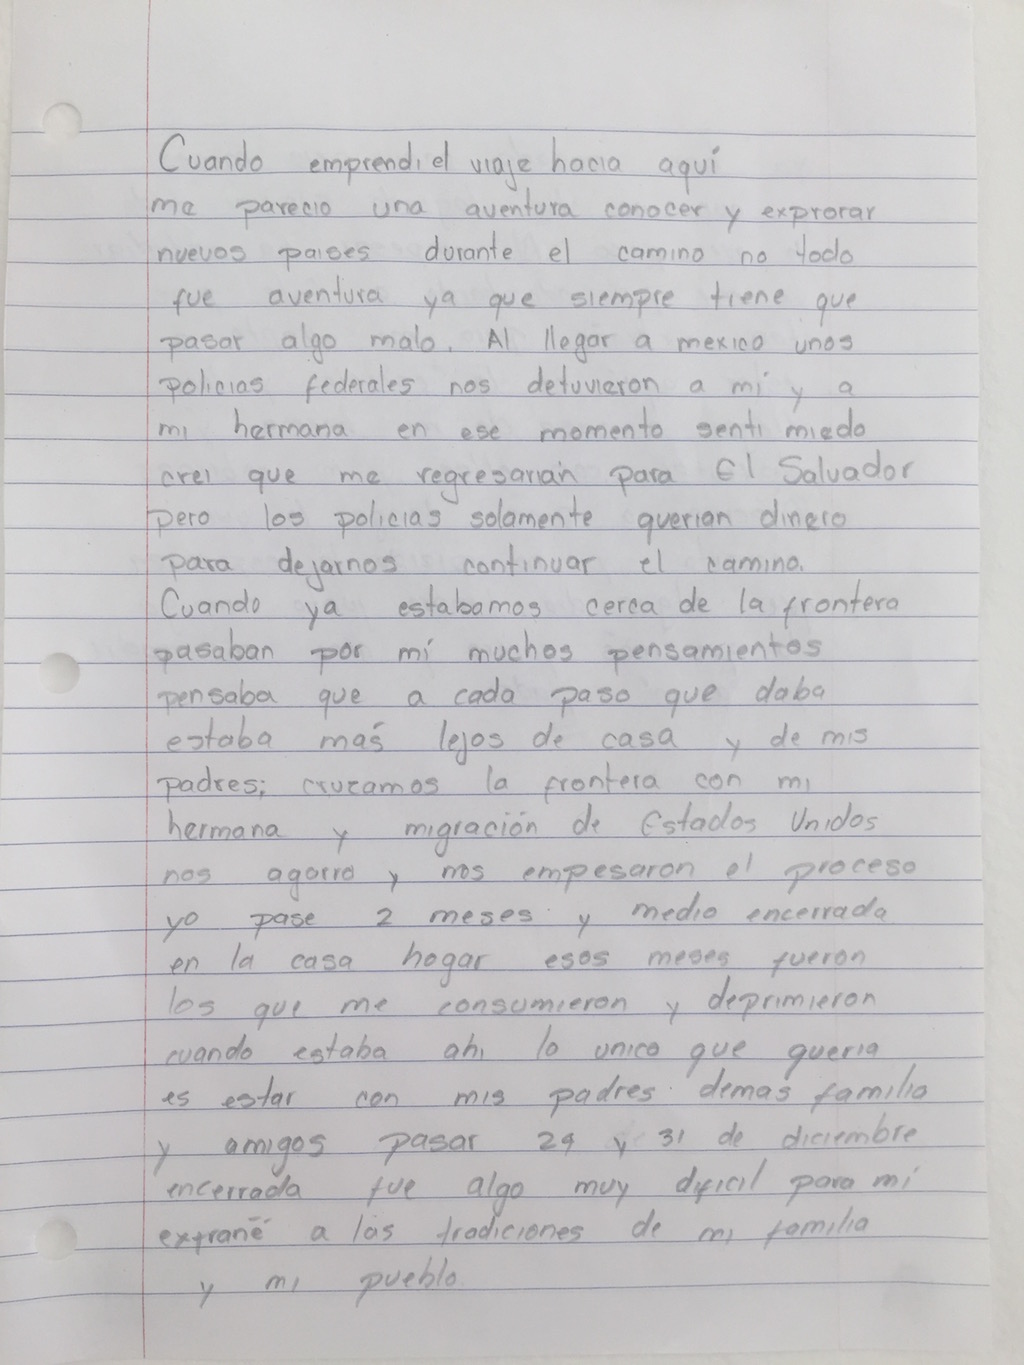 Cuando emprendi el viaje hacia aquí
me parecio una aventura conocer y exprorar
nuevos paises durante el camino no todo
fue aventura ya que siempre tiene que
pasar algo malo. Al llegar a mexico unos
policias federales nos detuvieron a mí y a
mi hermana en ese momento senti miedo
crei que me regresarian para El Salvador
pero los policias solamente querian dinero
para dejarnos continuar el camino.
Cuando ya estabamos cerca de la frontera
pasaban por mí muchos pensamientos
pensaba que a cada paso que daba
estaba más lejos de casa y de mis
padres; cruzamos la frontera con mi
hermana y migración de Estados Unidos
nos agarro y nos empesaron el proceso
yo pase 2 meses y medio encerrada
en la casa hogar esos meses fueron
los que me consumieron y deprimieron
cuando estaba ahi lo unico que queria
es estar con mis padres demas familia
y amigos pasar 24 y 31 de diciembre
encerrada fue algo muy dificil para mí
extrañé a las tradiciones de mi familia
y mi pueblo